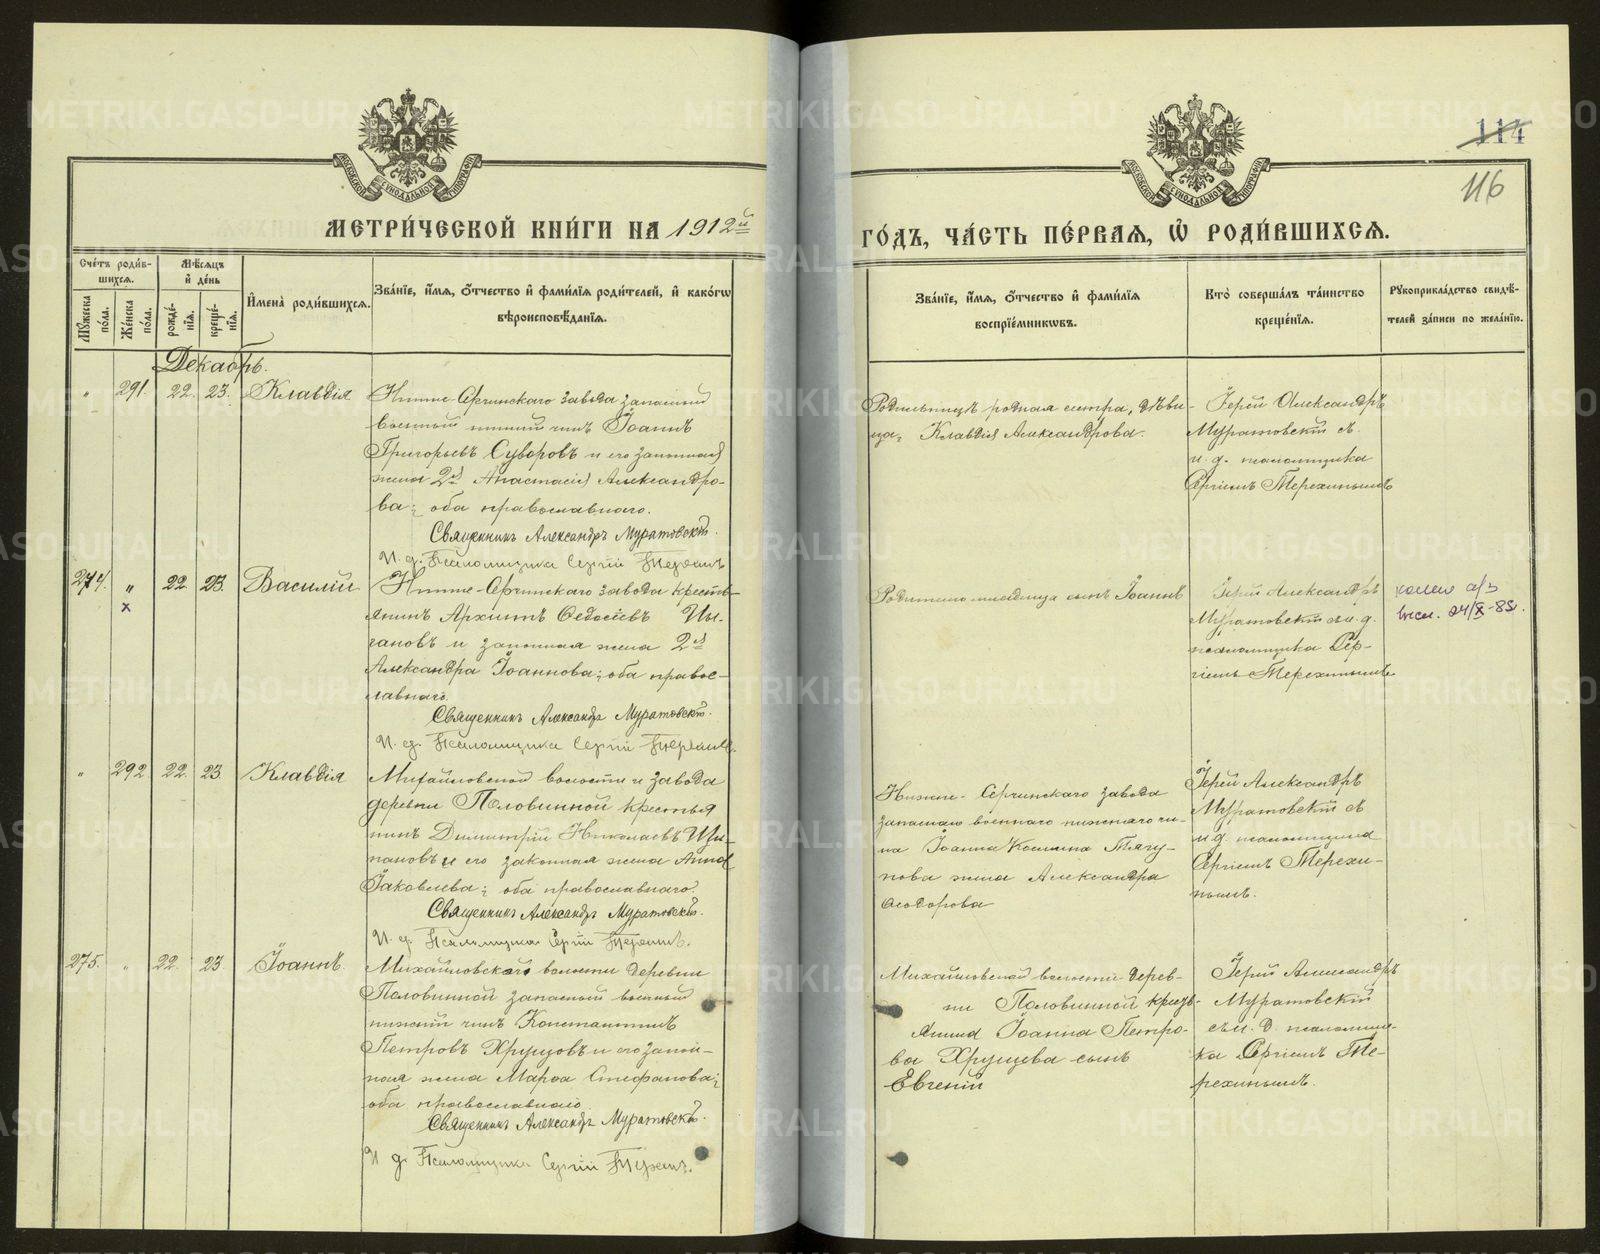 114
116
МЕТРИ́ЧЕСКОЙ КНИ́ГИ НА 1912й
ГО́ДЪ, ЧА́СТЬ ПЕ́РВАЯ, Ѡ҆ РОДИ́ВШИХСЯ.
Сче́тъ роди́вшихся.
Мꙋ́жеска по́ла.
Же́нска по́ла.
Мѣ́сяцъ и҆ де́нь
рожде́нїя.
креще́нїя.
И҆мена̀ роди́вшихся.
Зва́нїе, и҆́мя, ѻ҆́тчество и҆ фами́лїя роди́телей, и҆ како́гѡ
вѣроисповѣ́данїя.
Зва́нїе, и҆́мя, ѻ҆́тчество и҆ фами́лїя
воспрїе́мникѡвъ.
Кто̀ соверша́лъ та́инство
креще́нїя.
Рꙋкоприкла́дство свидѣ́-
телей за́писи по жела́нїю.
Декабрь.
" 291. 22. 23. Клавдія
Нижне-Сергинскаго завода запасный
военный нижній чинъ Іоаннъ
Григорьевъ Суворовъ и его законная
жена 2я Анастасія Александро-
ва; оба православнаго.
Священникъ Александръ Муратовскій.
И. д. Псаломщика Сергій Терехинъ
Родильницѣ родная сестра, дѣви-
ца, Клавдія Александрова.
Іерей Александръ
Муратовскій съ
и. д. псаломщика
Сергіемъ Терехинымъ
274. " 22. 23. Василій
x
Нижне-Сергинскаго завода кресть-
янинъ Архипъ Ѳедосіевъ Цы-
гановъ и законная жена 2я
Александра Іоаннова; оба правос-
лавнаго.
Священникъ Александръ Муратовскій.
И. д. Псаломщика Сергій Терехинъ.
сынъ Іоаннъ
Іерей Александръ
Муратовскій съ и. д.
псаломщика Сер-
гіемъ Терехинымъ
24/X-85
" 292 22. 23. Клавдія
Михайловской волости и завода
деревни Половинной крестья
нинъ Димитрій Николаевъ Цы-
гановъ и его законная жена Анна
Іаковлева; оба православнаго.
Священникъ Александръ Муратовскій.
И. д. Псаломщика Сергій Терехинъ.
Нижне-Сергинскаго завода
запаснаго военнаго нижняго чи-
на Іоанна Космина Тягу-
нова жена Александра
Ѳеодорова
Іерей Александръ
Муратовскій съ
и. д. псаломщика
Сергіемъ Терехи-
нымъ.
275. " 22 23 Іоаннъ.
Михайловской волости деревни
Половинной запасный военный
нижній чинъ Константинъ
Петровъ Хрущовъ и его закон-
ная жена Марѳа Стефанова;
оба православнаго.
Священникъ Александръ Муратовскій.
И. д. Псаломщика Сергій Терехинъ.
Михайловской волости дерев-
ни Половинной кресть-
янина Іоанна Петро-
ва Хрущева сынъ
Евгеній
Іерей Александръ
Муратовскій
съ и. д. псаломщи-
ка Сергіемъ Те-
рехинымъ.
METRIKI.GASO-URAL.RU